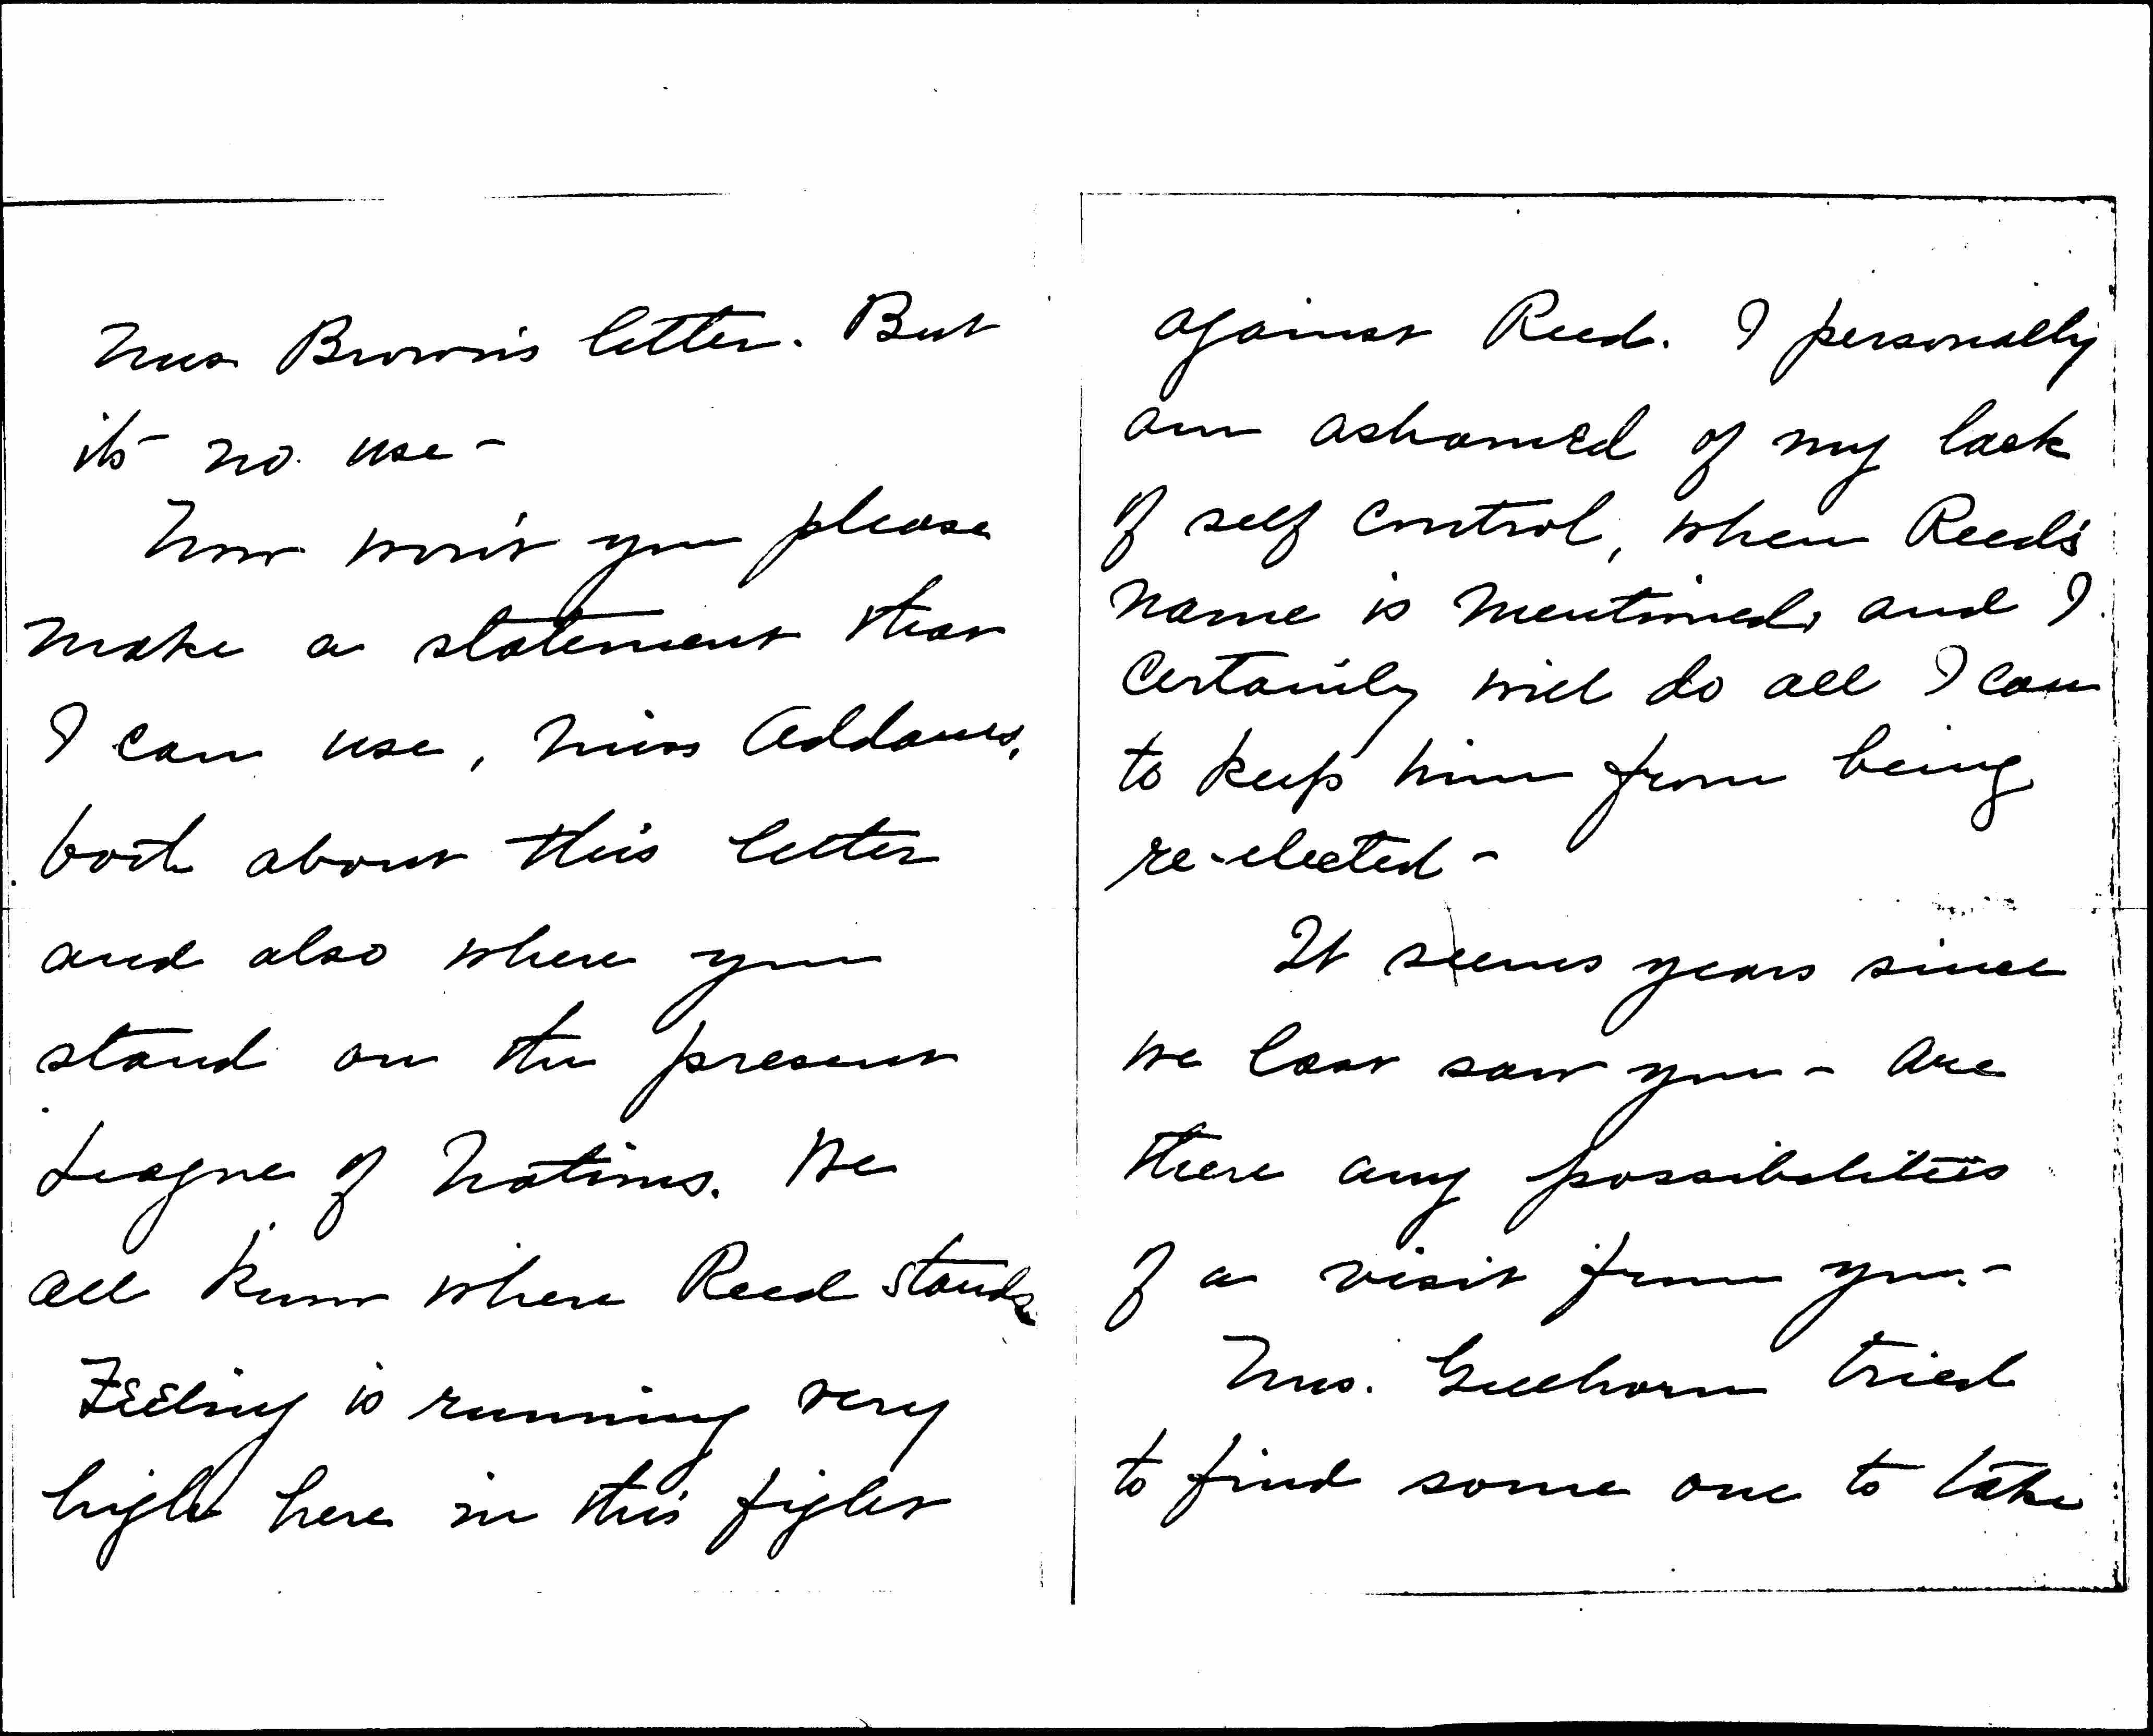 Mrs. Brown's letter. But
its no use -
Now won't you please
make a statement that
I can use, Miss Addams,
both about this letter
and also where you
stand on the present
League of Nations. We
all know where Reed stands
Feeling is running very
high here in this fight
against Reed. I personally
am ashamed of my lack
of self control, when Reed's
name is mentioned, and I
certainly will do all I can
to keep him from being
re-elected -
It seems years since
we last saw you - Are
there any possibilities
of a visit from you. -
Mrs. Gellhorn tried
to find some one to take